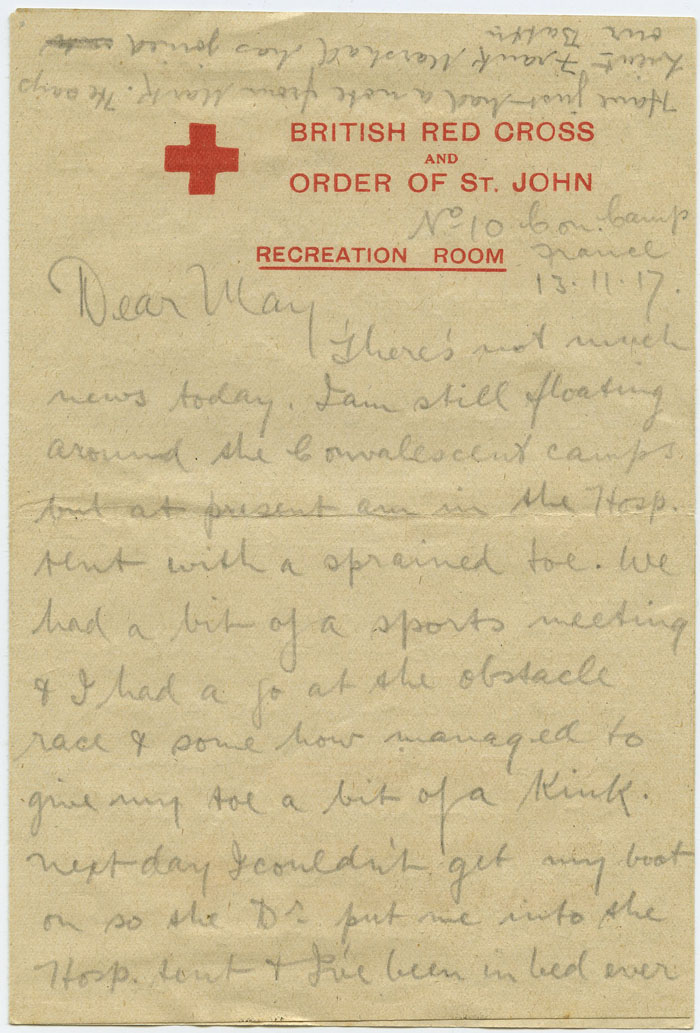 Have just had a note from Mark. He says
Lieut Frank Marshall has joined
our Battn
BRITISH RED CROSS
AND
ORDER OF ST. JOHN
No 10 Con. Camp
RECREATION ROOM
France
13.11.17.
Dear May
There's not much
news today. I am still floating
around the Convalescent camps
but at present am in the Hosp.
tent with a sprained toe. We
had a bit of a sports meeting
& I had a go at the obstacle
race & some how managed to
give my toe a bit of a kink.
Next day I couldn't get my boot
on so the Dr. put me into the
Hosp. tent & I've been in bed ever